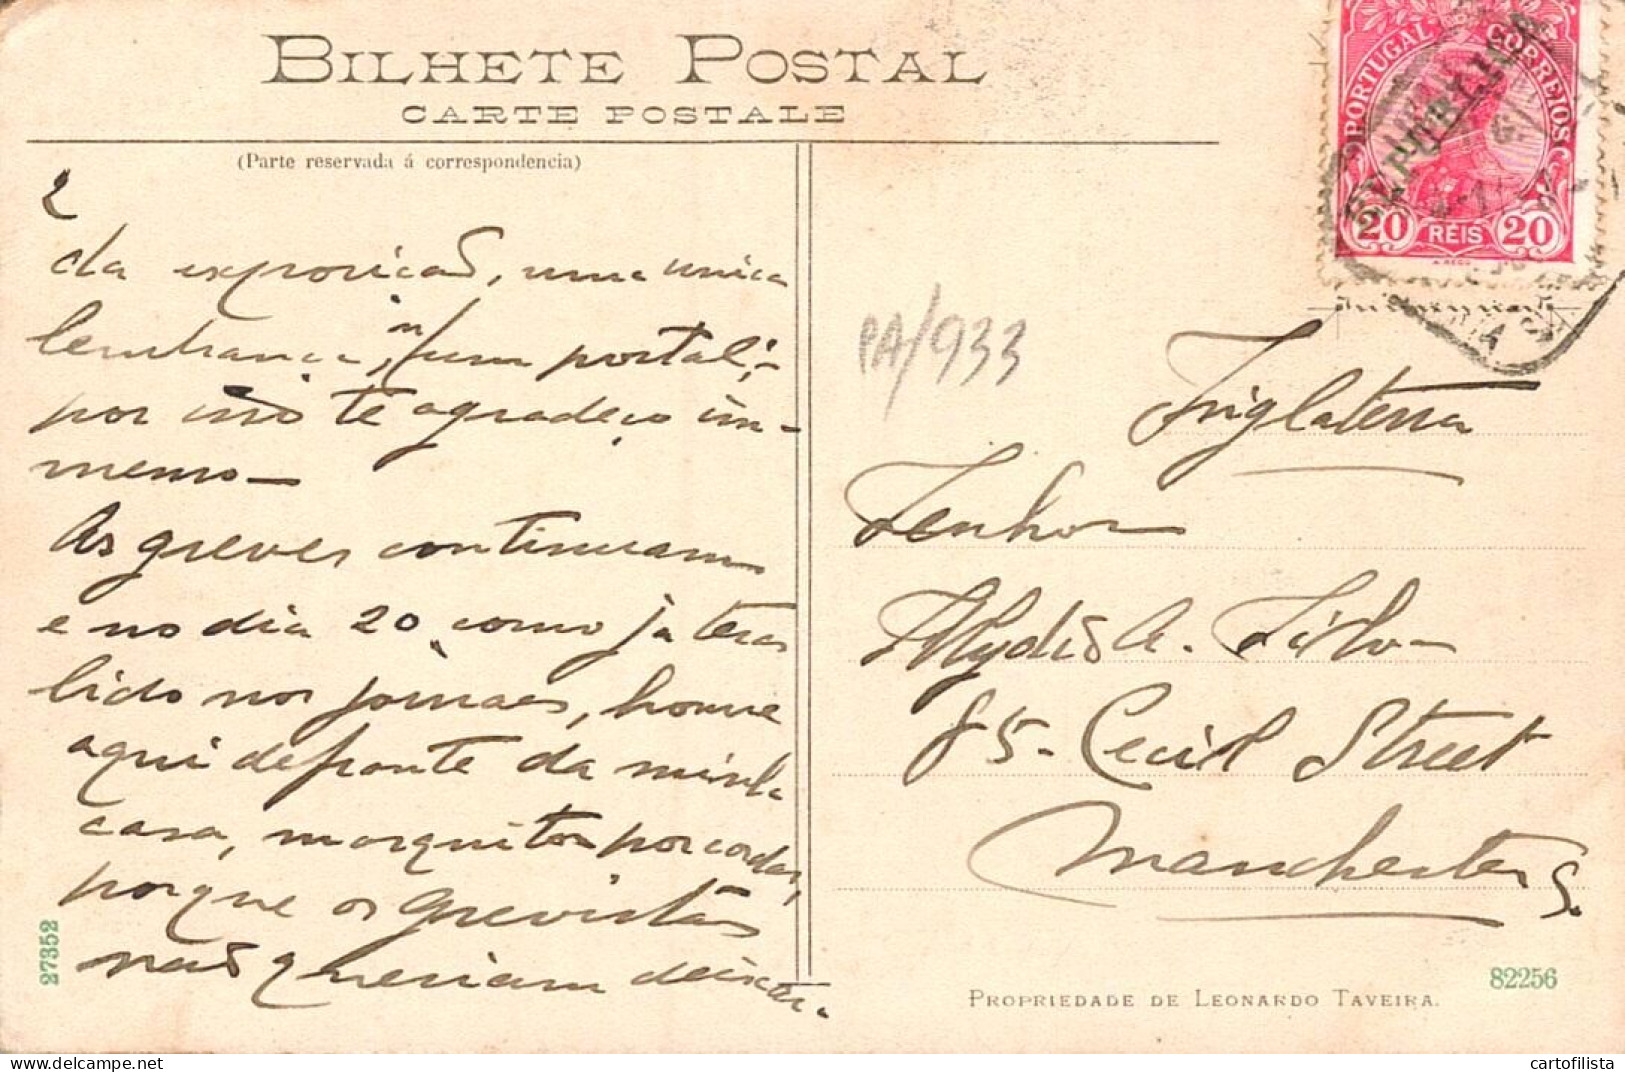 BILHETE POSTAL
CARTE POSTALE
(Parte reservada á correspondencia)
PORTUGAL CORREIOS
REPUBLICA
20 REIS 20
2
da expozicaõ, uma unica
lembranca, n'um postal;-
por isso te agradeço im-
menso-
As greves continuam
e no dia 20 como ja teras
lido nos jornaes, houve
aqui defronte da minha
casa, mosquitos por cordas,
porque os grevistas
naõ queriam deixar
PA/933
Inglaterra
Senhor
A. Silva
85- Cecil Street
Manchester S.
27352
82256
PROPRIEDADE DE LEONARDO TAVEIRA.
cartofilista